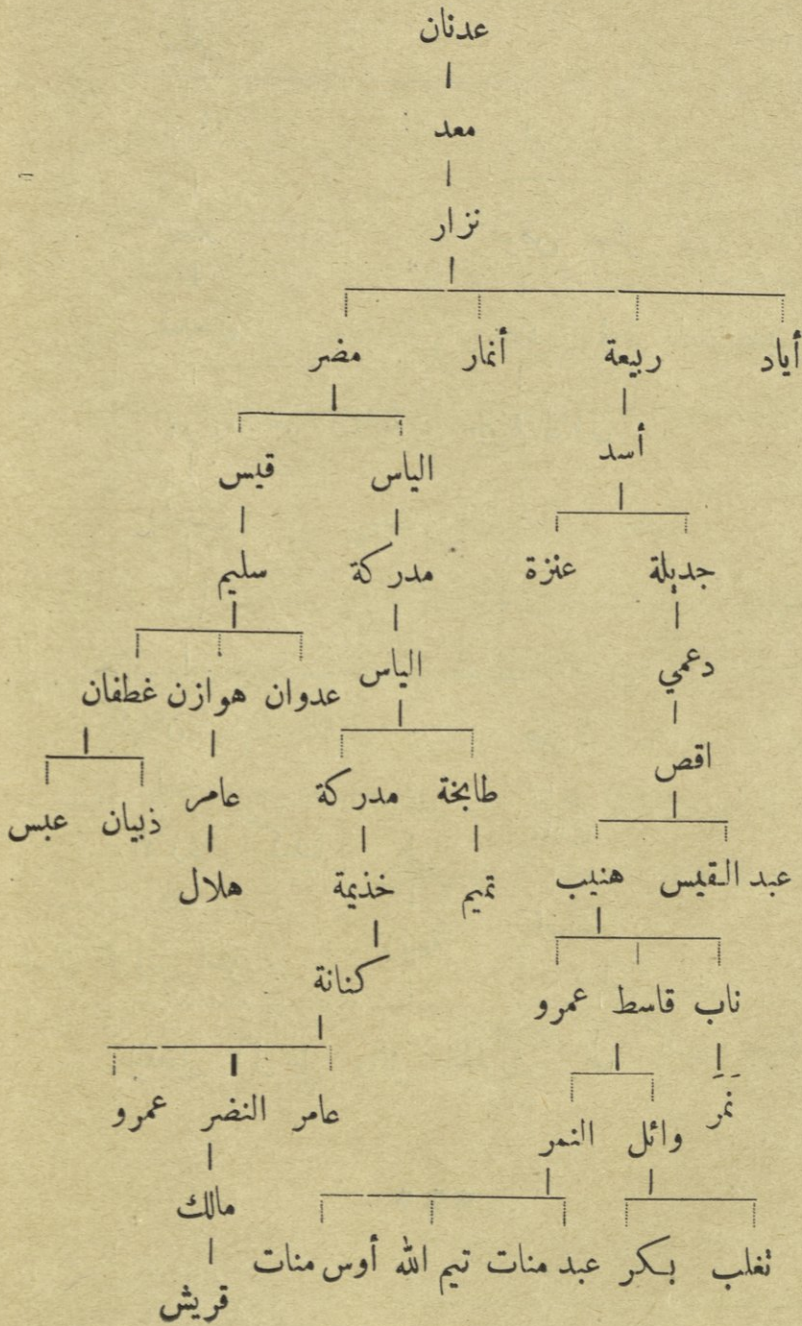 عدنان
معد
نزار
أياد ربيعة أنمار مضر
أسد
الياس قيس
جديلة عنزة مدركة سليم
دعمي الياس
عدوان هوازن غطفان
اقص
طابخة مدركة عامر ذبيان عبس
عبد القيس هنيب تميم خذيمة هلال
كنانة
ناب قاسط عمرو
نمر عامر النضر عمرو
وائل النمر
مالك
تغلب بكر عبد منات تيم الله أوس منات
قريش